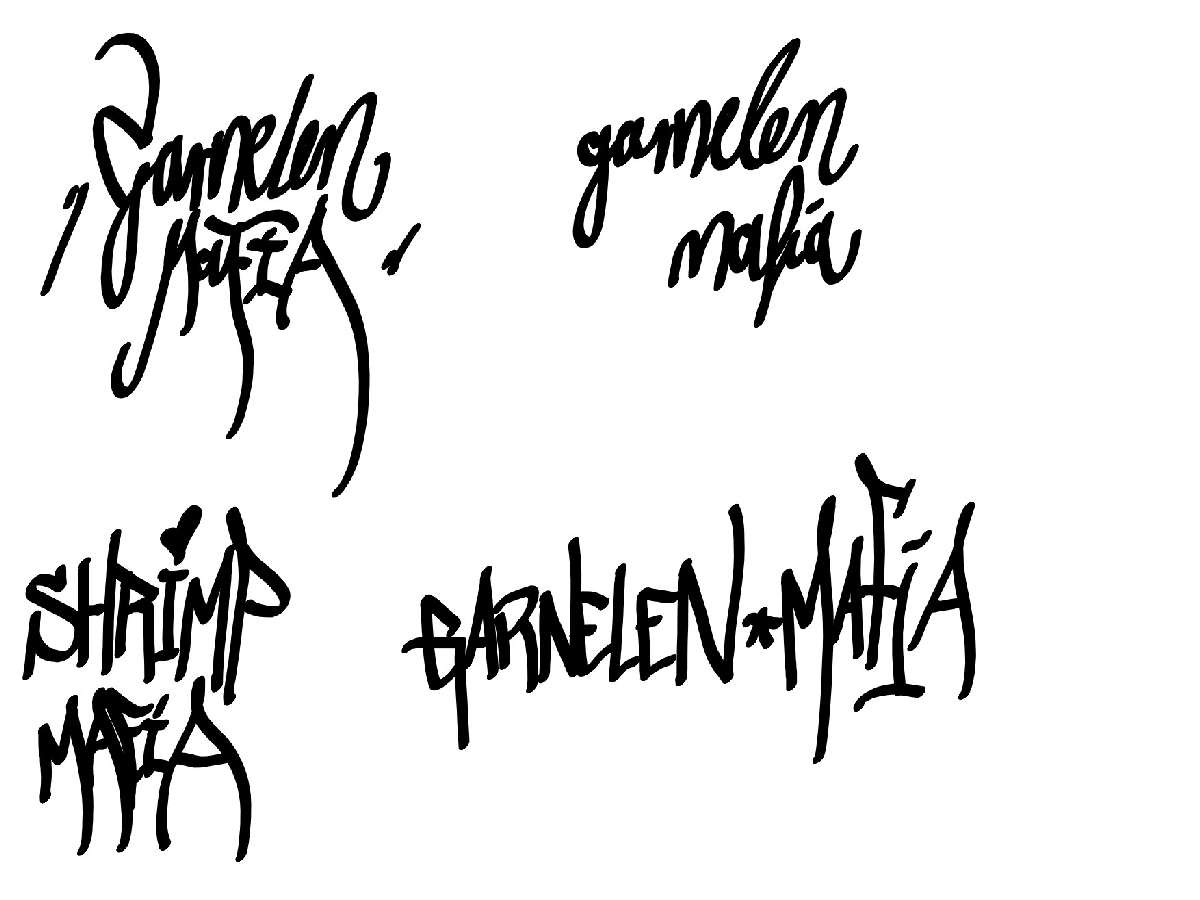 Garnelen
MAFIA
garnelen
mafia
SHRIMP
MAFIA
GARNELEN*MAFIA